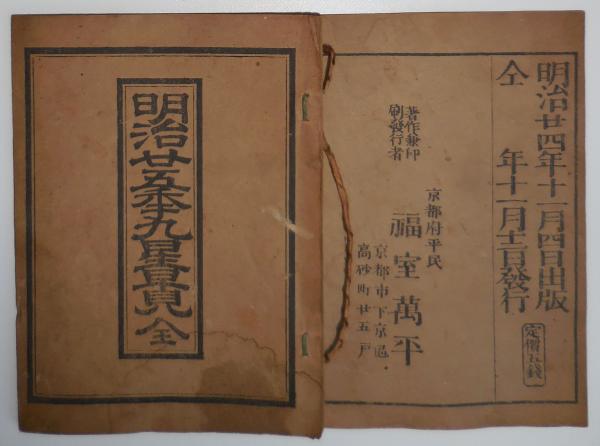 明治廿五年九星早見 全
明治廿四年十一月四日出版
仝 年十一月十二日發行
定價五錢
著作兼印
刷發行者
京都府平民
福室萬平
京都市下京區
高砂町廿五戸